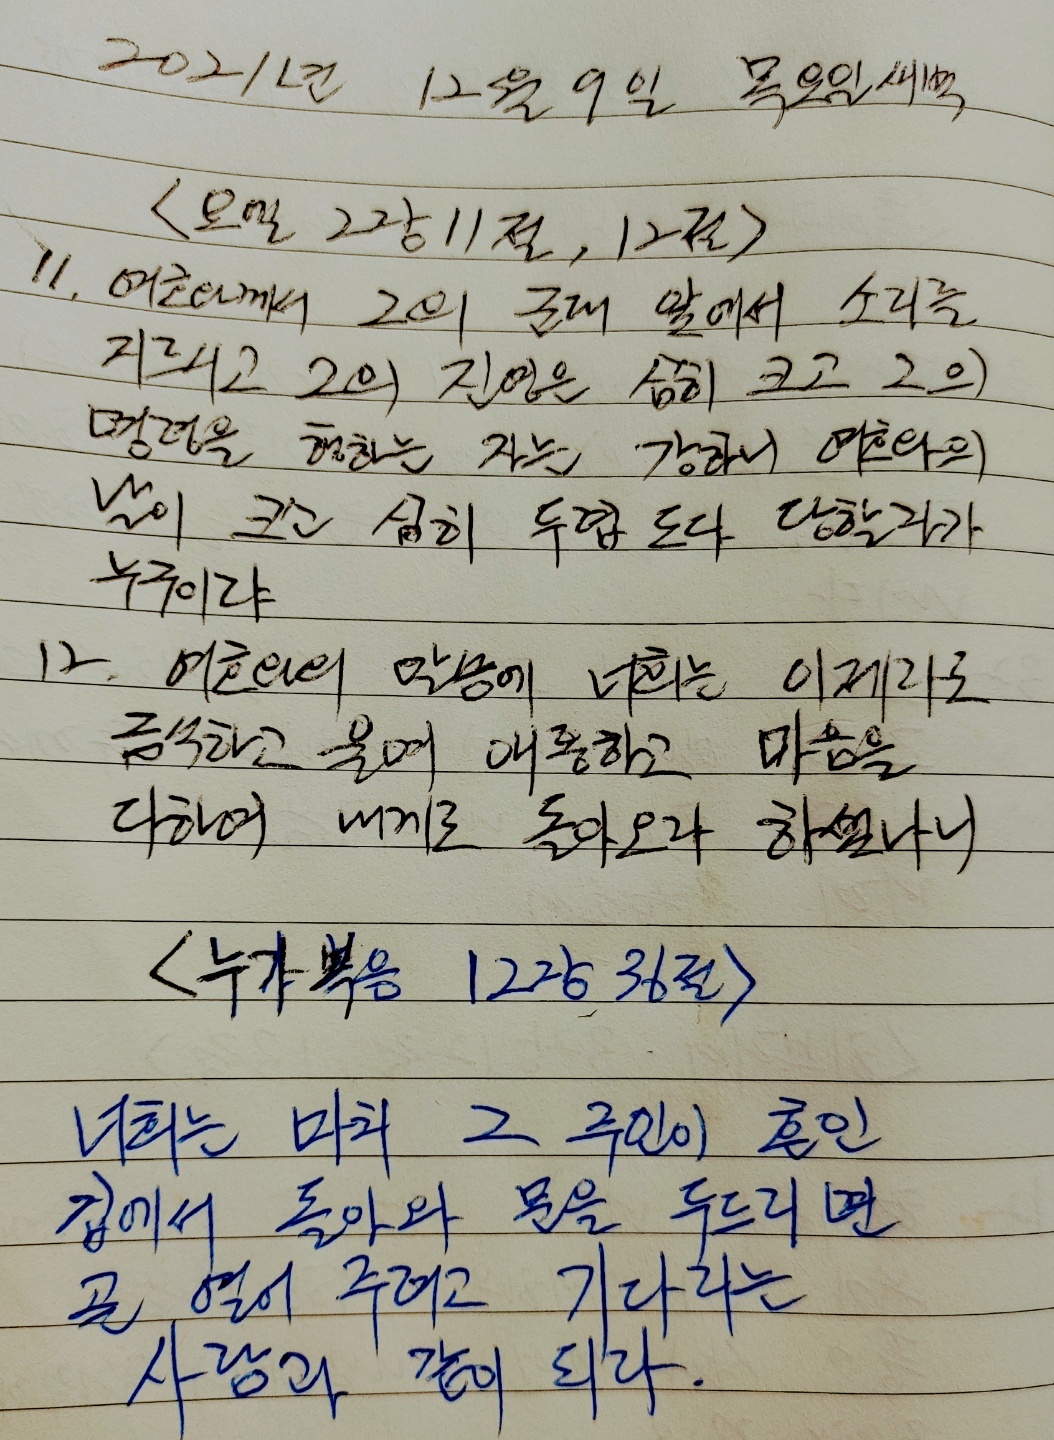 2021년 12월 9일 목요일 새벽
<요엘 2장 11절, 12절>
11. 여호와께서 그의 군대 앞에서 소리를
지르시고 그의 진영은 심히 크고 그의
명령을 행하는 자는 강하니 여호와의
날이 크고 심히 두렵도다 당할 자가
누구이랴
12. 여호와의 말씀에 너희는 이제라도
금식하고 울며 애통하고 마음을
다하여 내게로 돌아오라 하셨나니
<누가복음 12장 36절>
너희는 마치 그 주인이 혼인
집에서 돌아와 문을 두드리면
곧 열어 주려고 기다리는
사람과 같이 되라.